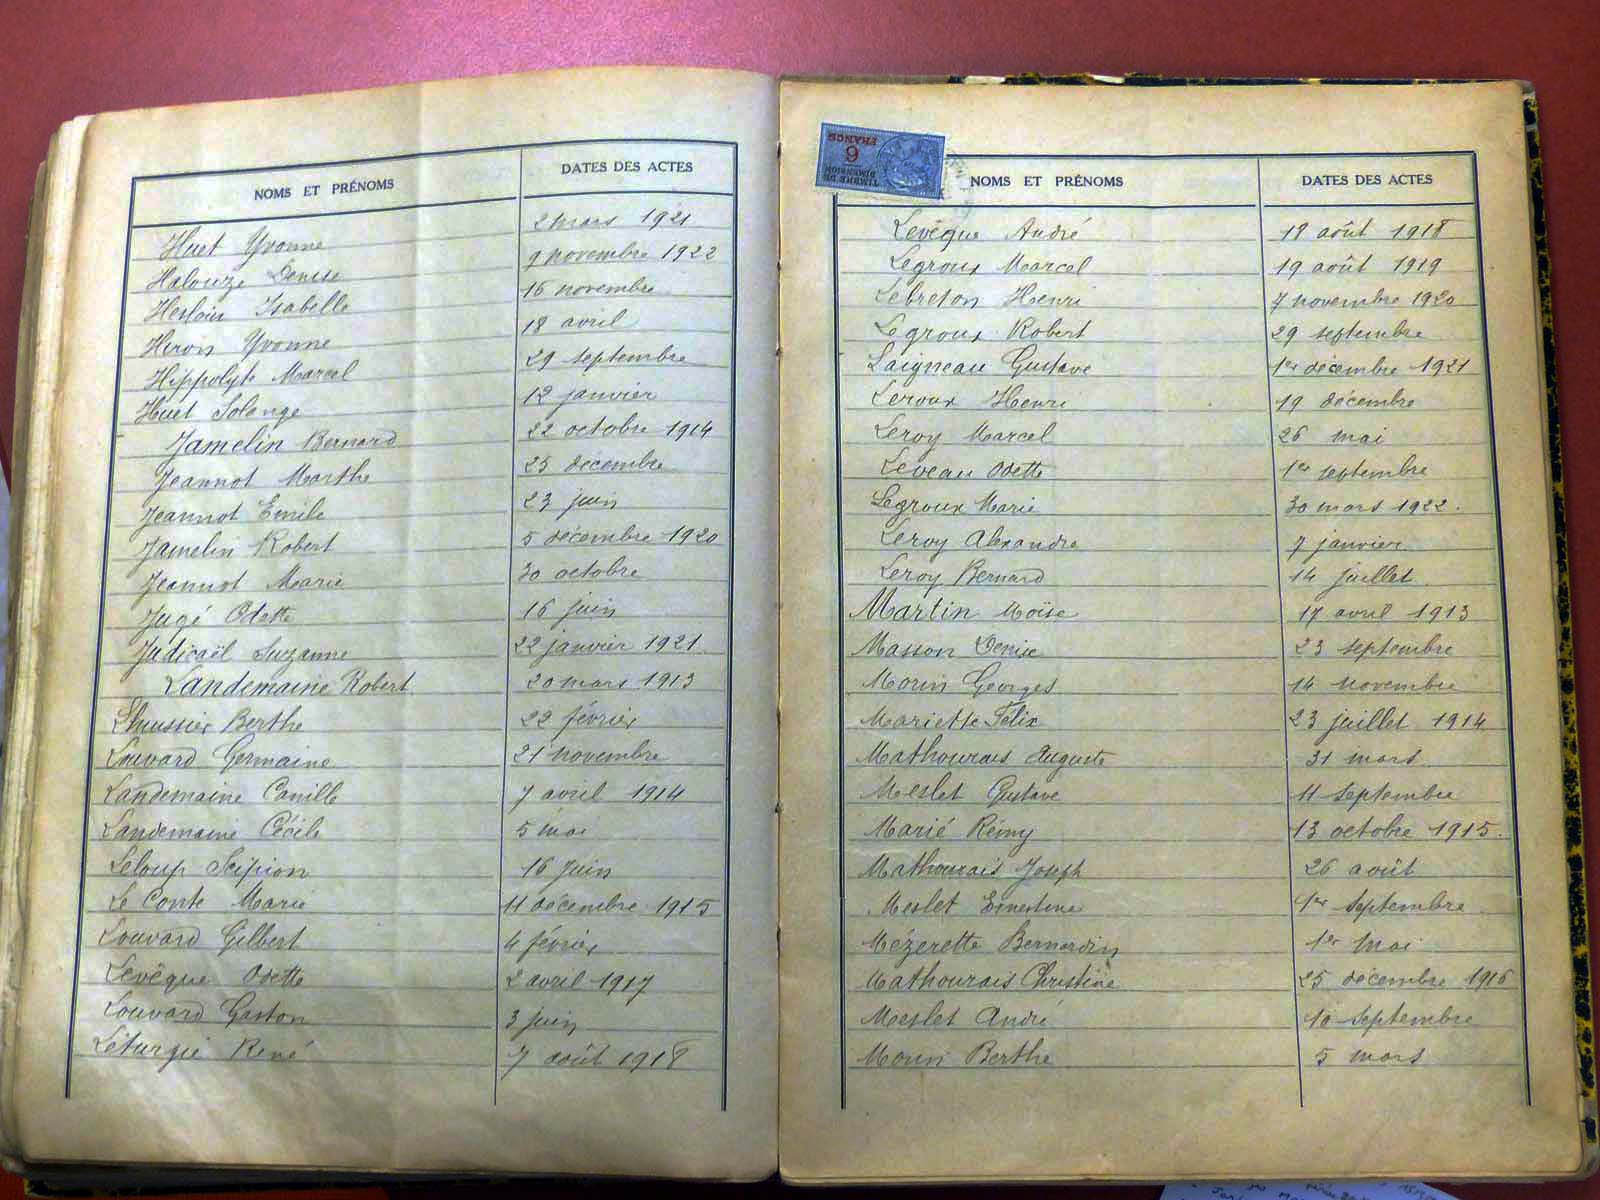 NOMS ET PRÉNOMS DATES DES ACTES
Huet Yvonne 2 mars 1921
Halouze Denise 9 novembre 1922
Heslouin Isabelle 16 novembre
Hirois Yvonne 18 avril
Hippolyte Marcel 29 septembre
Huet Solange 12 janvier
Jamelin Bernard 22 octobre 1914
Jeannot Marthe 25 decembre
Jeannot Emile 23 juin
Jamelin Robert 5 décembre 1920
Jeannot Marie 30 octobre
Jugé Odette 16 juin
Judicaël Suzanne 22 janvier 1921
Landemaine Robert 20 mars 1913
Lhuissier Berthe 22 février
Louvard Germaine 21 novembre
Landemaine Camille 7 avril 1914
Landemaine Cécile 5 mai
Leloup Scipion 16 juin
Le Conte Marie 11 décembre 1915
Louvard Gilbert 4 février
Levêque Odette 2 avril 1917
Louvard Gaston 3 juin
Léturgie René 7 août 1918
TIMBRE DE
DIMENSION
6
FRANCS
NOMS ET PRÉNOMS DATES DES ACTES
Levêque André 19 août 1918
Legroux Marcel 19 août 1919
Lebreton Henri 7 novembre 1920
Legroux Robert 29 septembre
Laigneau Gustave 1er décembre 1921
Leroux Henri 19 décembre
Leroy Marcel 26 mai
Leveau Odette 1er septembre
Legroux Marie 30 mars 1922.
Leroy Alexandre 7 janvier
Leroy Bernard 14 juillet
Martin Moïse 17 avril 1913
Masson Denise 23 septembre
Morin Georges 14 novembre
Mariette Félix 23 juillet 1914
Mathourais Auguste 31 mars
Meslet Gustave 11 septembre
Marié Rémy 13 octobre 1915.
Mathourais Joseph 26 août
Meslet Ernestine 1er septembre
Mézerette Bernardin 1er mai
Mathourais Christine 25 décembre 1916
Meslet André 10 septembre
Morin Berthe 5 mars